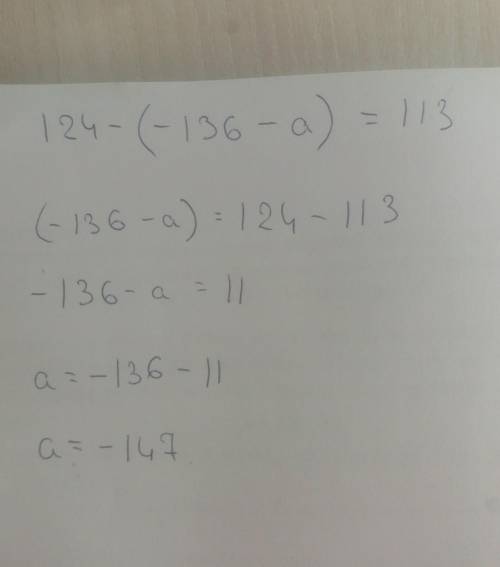 124-(-136-a) = 113
(-136-a) = 124-113
-136-a = 11
a = -136-11
a = -147